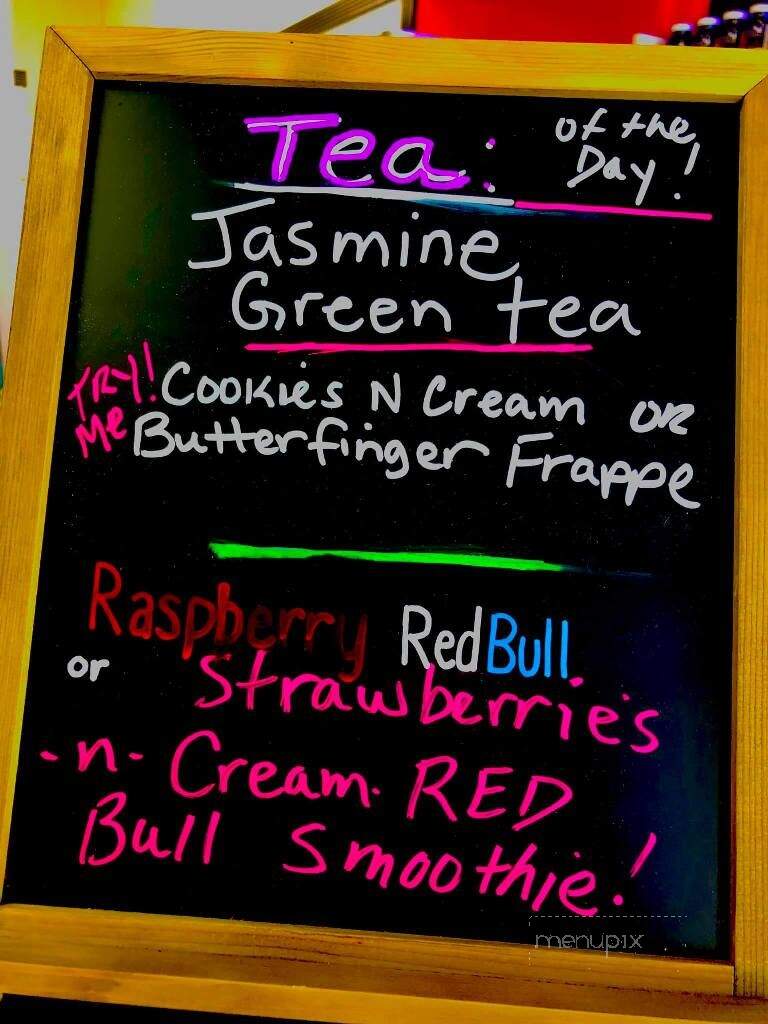 Tea: of the
Day!
Jasmine
Green tea
TRY! Cookies N Cream OR
Me Butterfinger Frappe
Raspberry RedBull
or Strawberries
-n- Cream RED
Bull Smoothie!
menupix